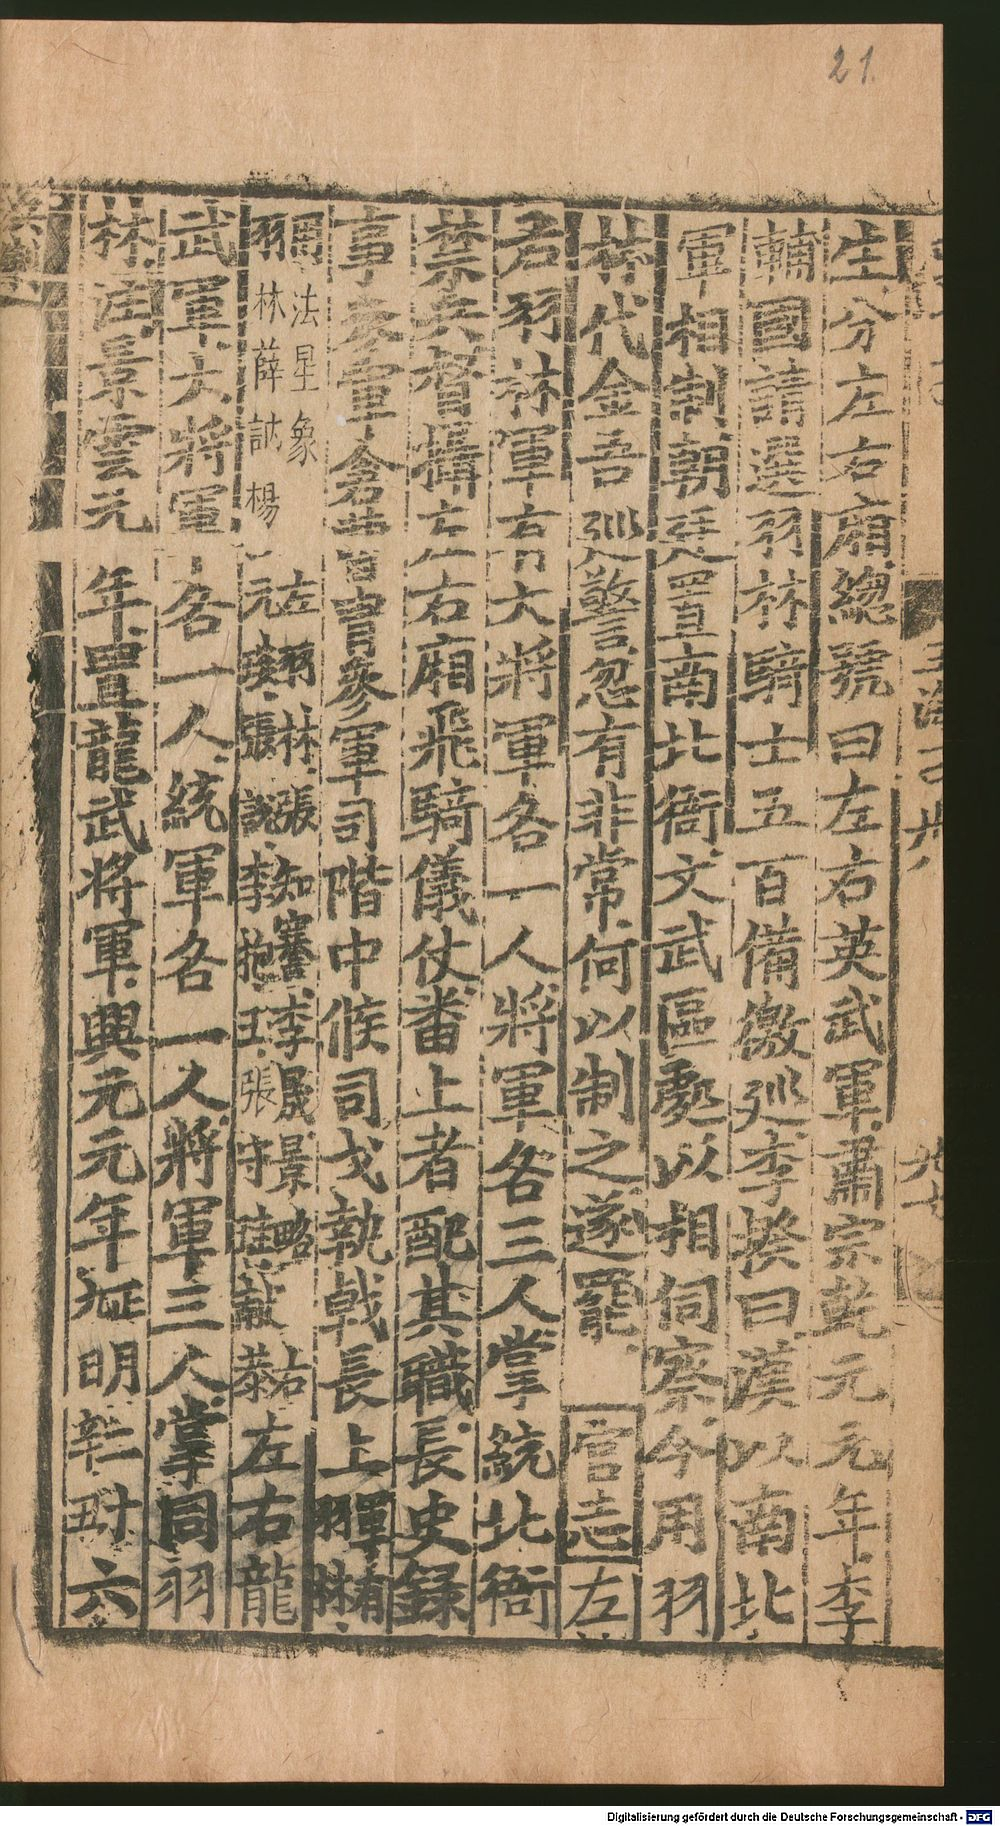 21.
生分左右廂總號曰左右英武軍肅宗乾元元年李
輔國請選羽林騎士五百備徼巡李揆曰漢以南北
軍相制朝廷置南北衙文武區處以相伺察今用羽
林代金吾巡警忽有非常何以制之遂罷 官志左
右羽林軍大將軍各一人將軍各三人掌統北衙
禁兵督攝左右廂飛騎儀仗番上者配其職長史錄
事參軍倉曹冑參軍司階中候司戈執戟長上羽林軍
法星象 左羽林張知騫李晟景略右
羽林薛訥楊元琰張說李抱玉張守珪獻恭左右龍
武軍大將軍各一人統軍各一人將軍三人掌同羽
林注景雲元年置龍武將軍興元元年 六
Digitalisierung gefördert durch die Deutsche Forschungsgemeinschaft - DFG